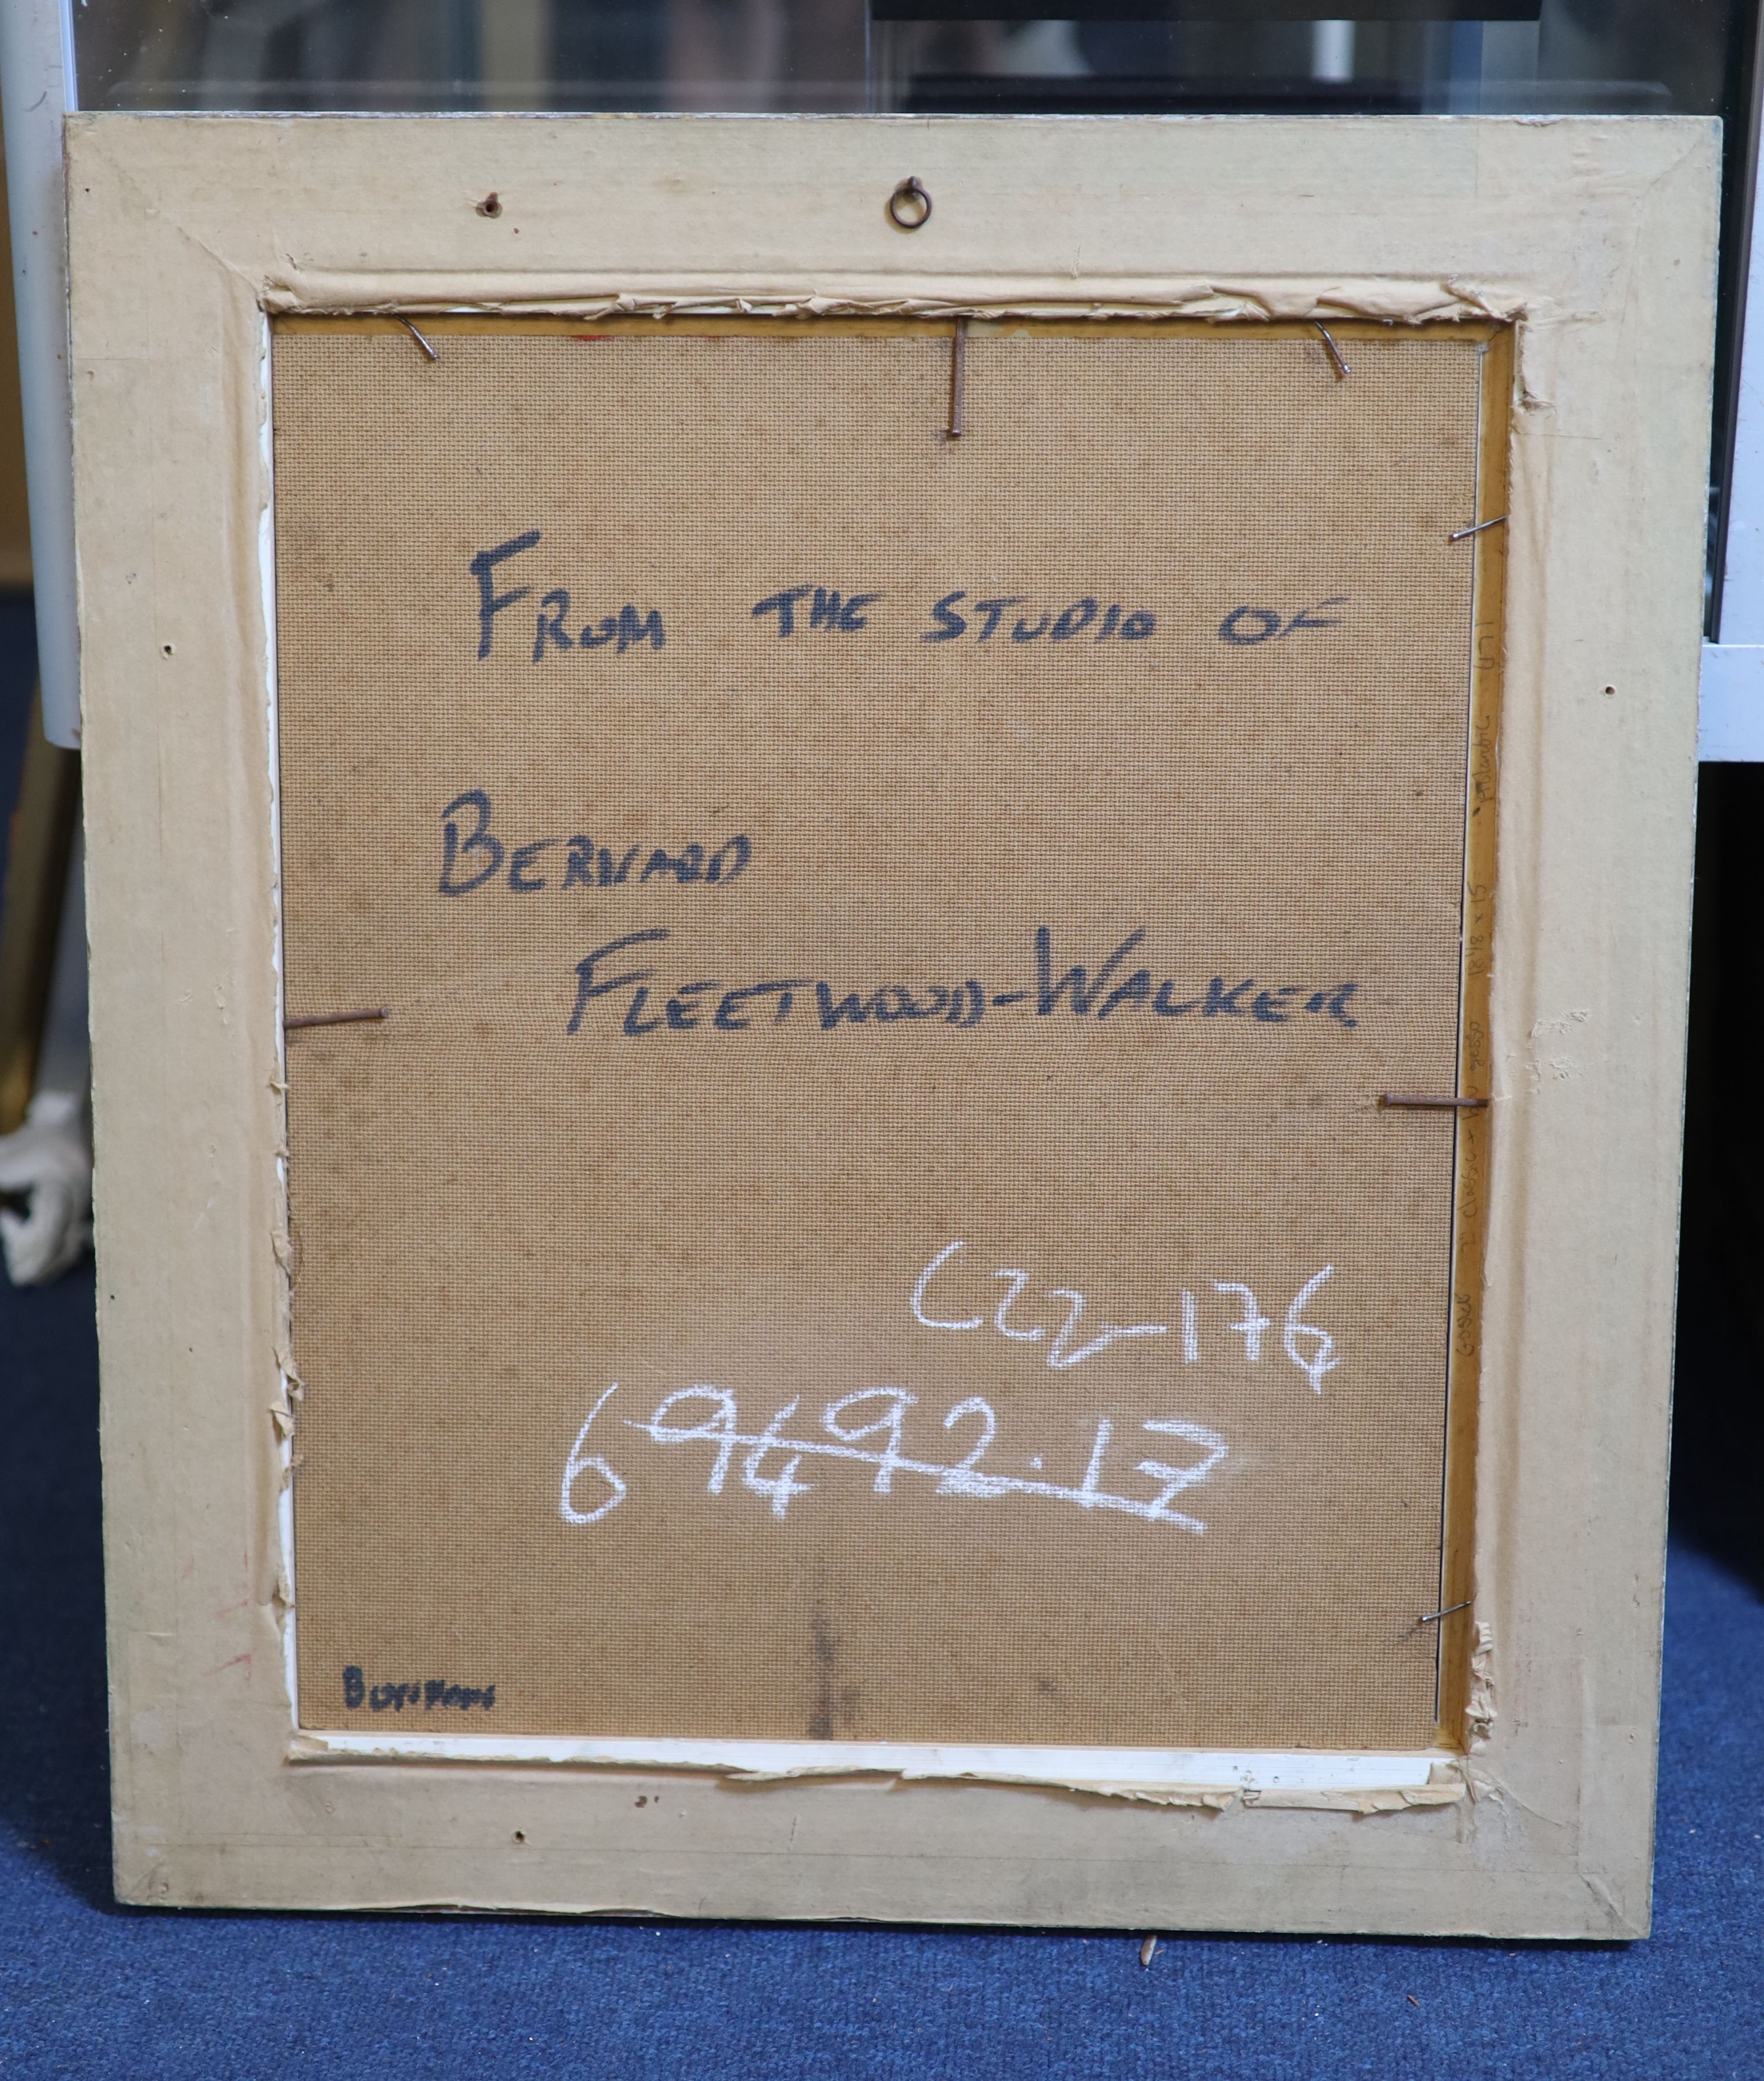 FROM THE STUDIO OF
BERNARD
FLEETWOOD-WALKER
C22-176
69492.17
18 1/8 x 15